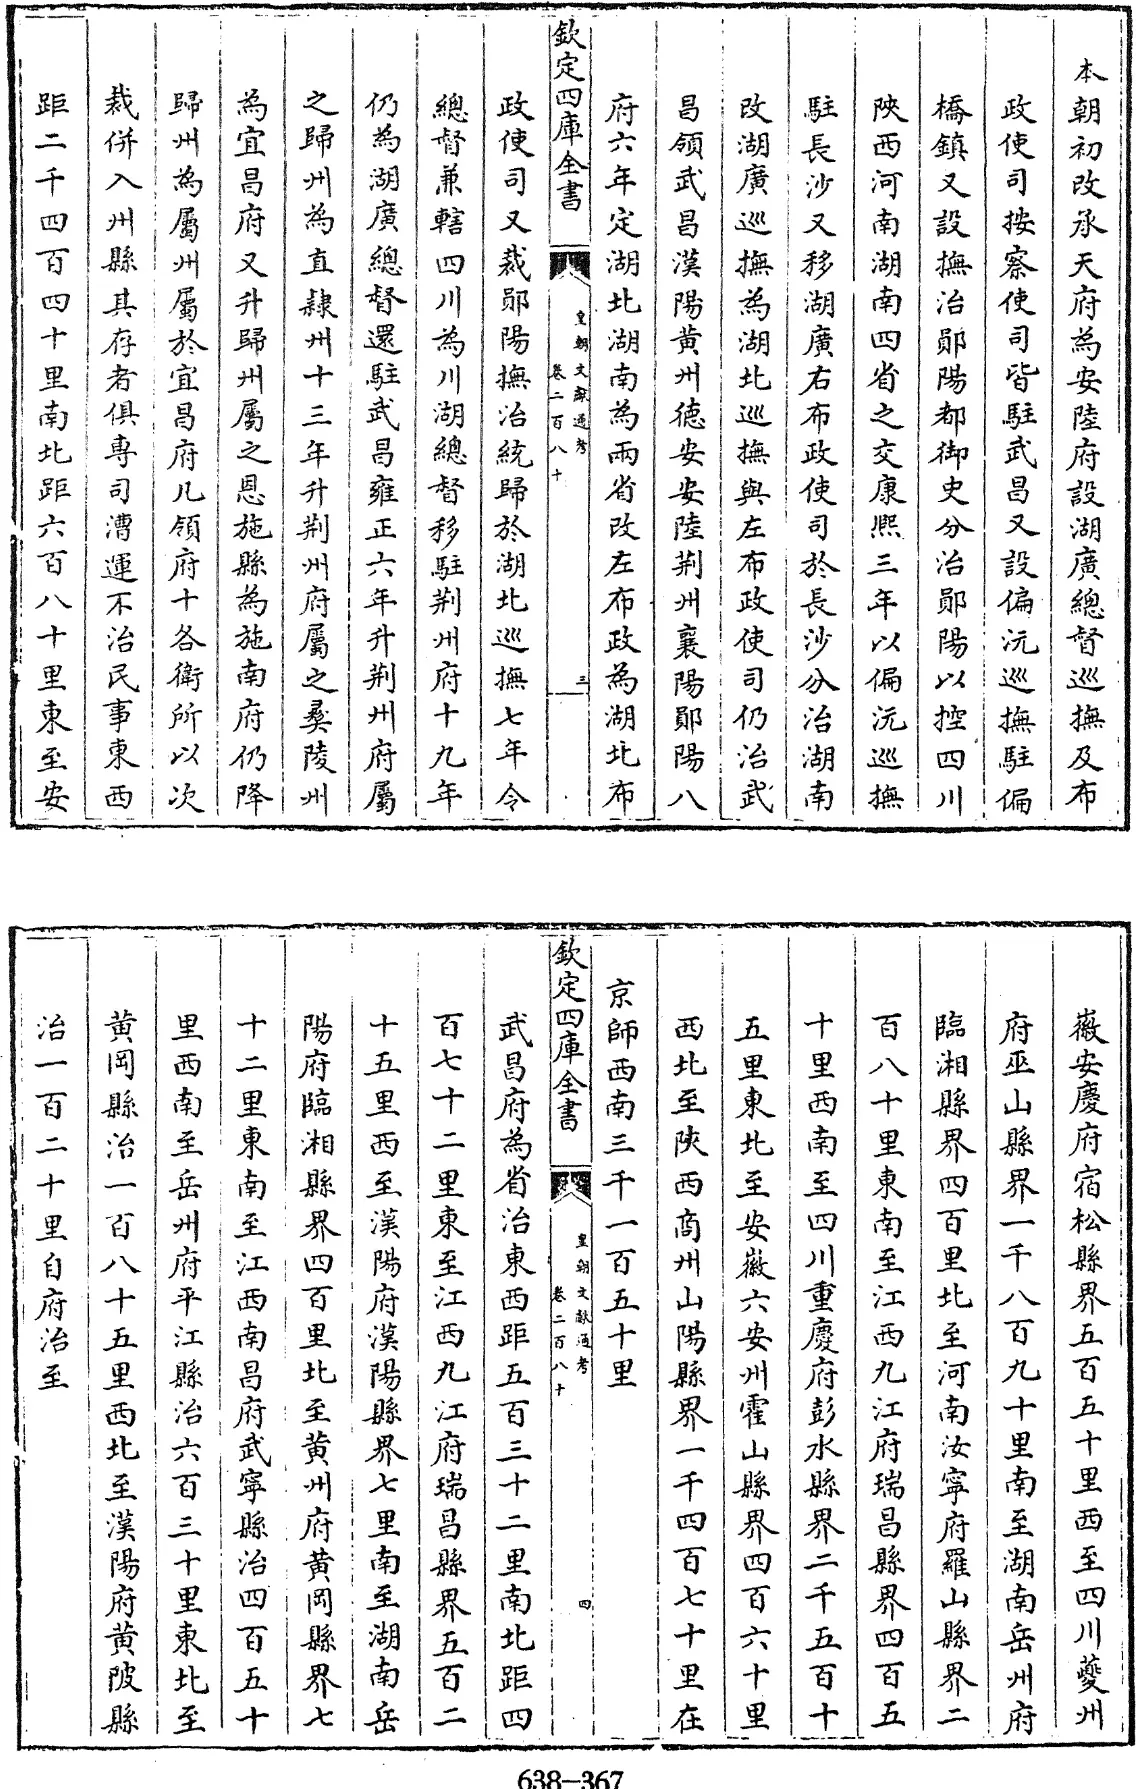 本朝初改承天府為安陸府設湖廣總督巡撫及布
政使司按察使司皆駐武昌又設偏沅巡撫駐偏
橋鎮又設撫治鄖陽都御史分治鄖陽以控四川
陜西河南湖南四省之交康熙三年以偏沅巡撫
駐長沙又移湖廣右布政使司於長沙分治湖南
改湖廣巡撫為湖北巡撫與左布政使司仍治武
昌領武昌漢陽黃州德安安陸荆州襄陽鄖陽八
府六年定湖北湖南為兩省改左布政為湖北布
欽定四庫全書
皇朝文獻通考
卷二百八十
三
政使司又裁鄖陽撫治統歸於湖北巡撫七年令
總督兼轄四川為川湖總督移駐荆州府十九年
仍為湖廣總督還駐武昌雍正六年升荆州府屬
之歸州為直隸州十三年升荆州府屬之彞陵州
為宜昌府又升歸州屬之恩施縣為施南府仍降
歸州為屬州屬於宜昌府凡領府十各衛所以次
裁併入州縣其存者俱專司漕運不治民事東西
距二千四百四十里南北距六百八十里東至安
徽安慶府宿松縣界五百五十里西至四川夔州
府巫山縣界一千八百九十里南至湖南岳州府
臨湘縣界四百里北至河南汝寧府羅山縣界二
百八十里東南至江西九江府瑞昌縣界四百五
十里西南至四川重慶府彭水縣界二千五百十
五里東北至安徽六安州霍山縣界四百六十里
西北至陜西商州山陽縣界一千四百七十里在
京師西南三千一百五十里
欽定四庫全書
皇朝文獻通考
卷二百八十
四
武昌府為省治東西距五百三十二里南北距四
百七十二里東至江西九江府瑞昌縣界五百二
十五里西至漢陽府漢陽縣界七里南至湖南岳
陽府臨湘縣界四百里北至黃州府黃岡縣界七
十二里東南至江西南昌府武寧縣治四百五十
里西南至岳州府平江縣治六百三十里東北至
黃岡縣治一百八十五里西北至漢陽府黃陂縣
治一百二十里自府治至
638—367